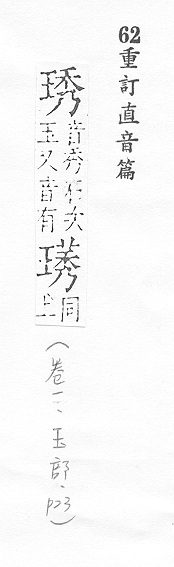 62重訂直音篇
琇音秀石次玉又音有璓同上
（卷一、玉部，p23）